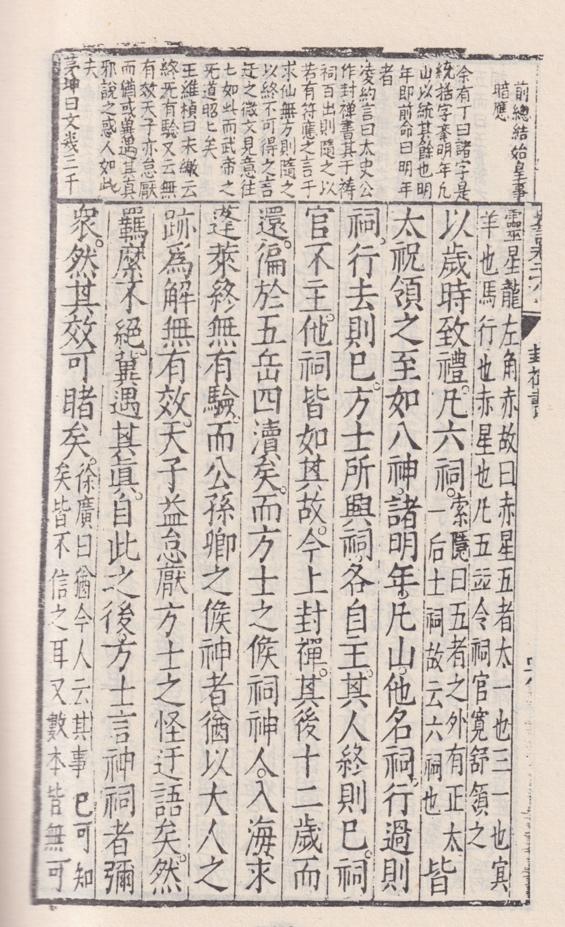 前總結始皇事
暗應
余有丁曰諸字是
統括字耆明年凡
山以統其餘也明
年即前命曰明年
者
凌約言曰太史公
作封禪書其于禱
祠百出則隨之以
若有符應之言于
求仙無方則隨之
以終不可得之言
迂之微文見意往
七如此而武帝之
死道昭匕矣
王維楨曰末纔云
終死有驗又云無
有效天子亦怠厭
而猶或冀遇其真
邪說之惑人如此
夫
茅坤曰文幾三千
封禪書
靈星龍左角赤故曰赤星五者太一也三一也㝠
羊也馬行也赤星也凡五竝令祠官寬舒領之
以歲時致禮。凡六祠。索隱曰五者之外有正太
一后土祠故云六祠也
皆
太祝領之至如八神。諸明年。凡山。他名祠。行過則
祠。行去則巳。方士所興祠。各自主。其人終則巳。祠
官不主。他祠皆如其故。今上封禪。其後十二歲而
還。徧於五岳四瀆矣。而方士之候祠神人。入海求
蓬萊終無有驗。而公孫卿之候神者猶以大人之
跡爲解無有效。天子益怠厭方士之怪迂語矣。然
羈縻不絕。冀遇其真。自此之後。方士言神祠者彌
衆。然其效可睹矣。徐廣曰猶今人云其事巳可知
矣皆不信之耳又數本皆無可